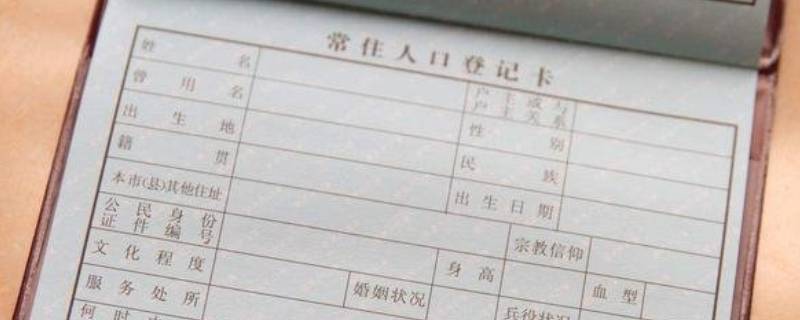 常住人口登记卡
姓名 户主或与户主关系
曾用名 性别
出生地 民族
籍贯 出生日期
本市(县)其他住址 宗教信仰
公民身份证件编号 身高 血型
文化程度 婚姻状况 兵役状况
服务处所
何时由